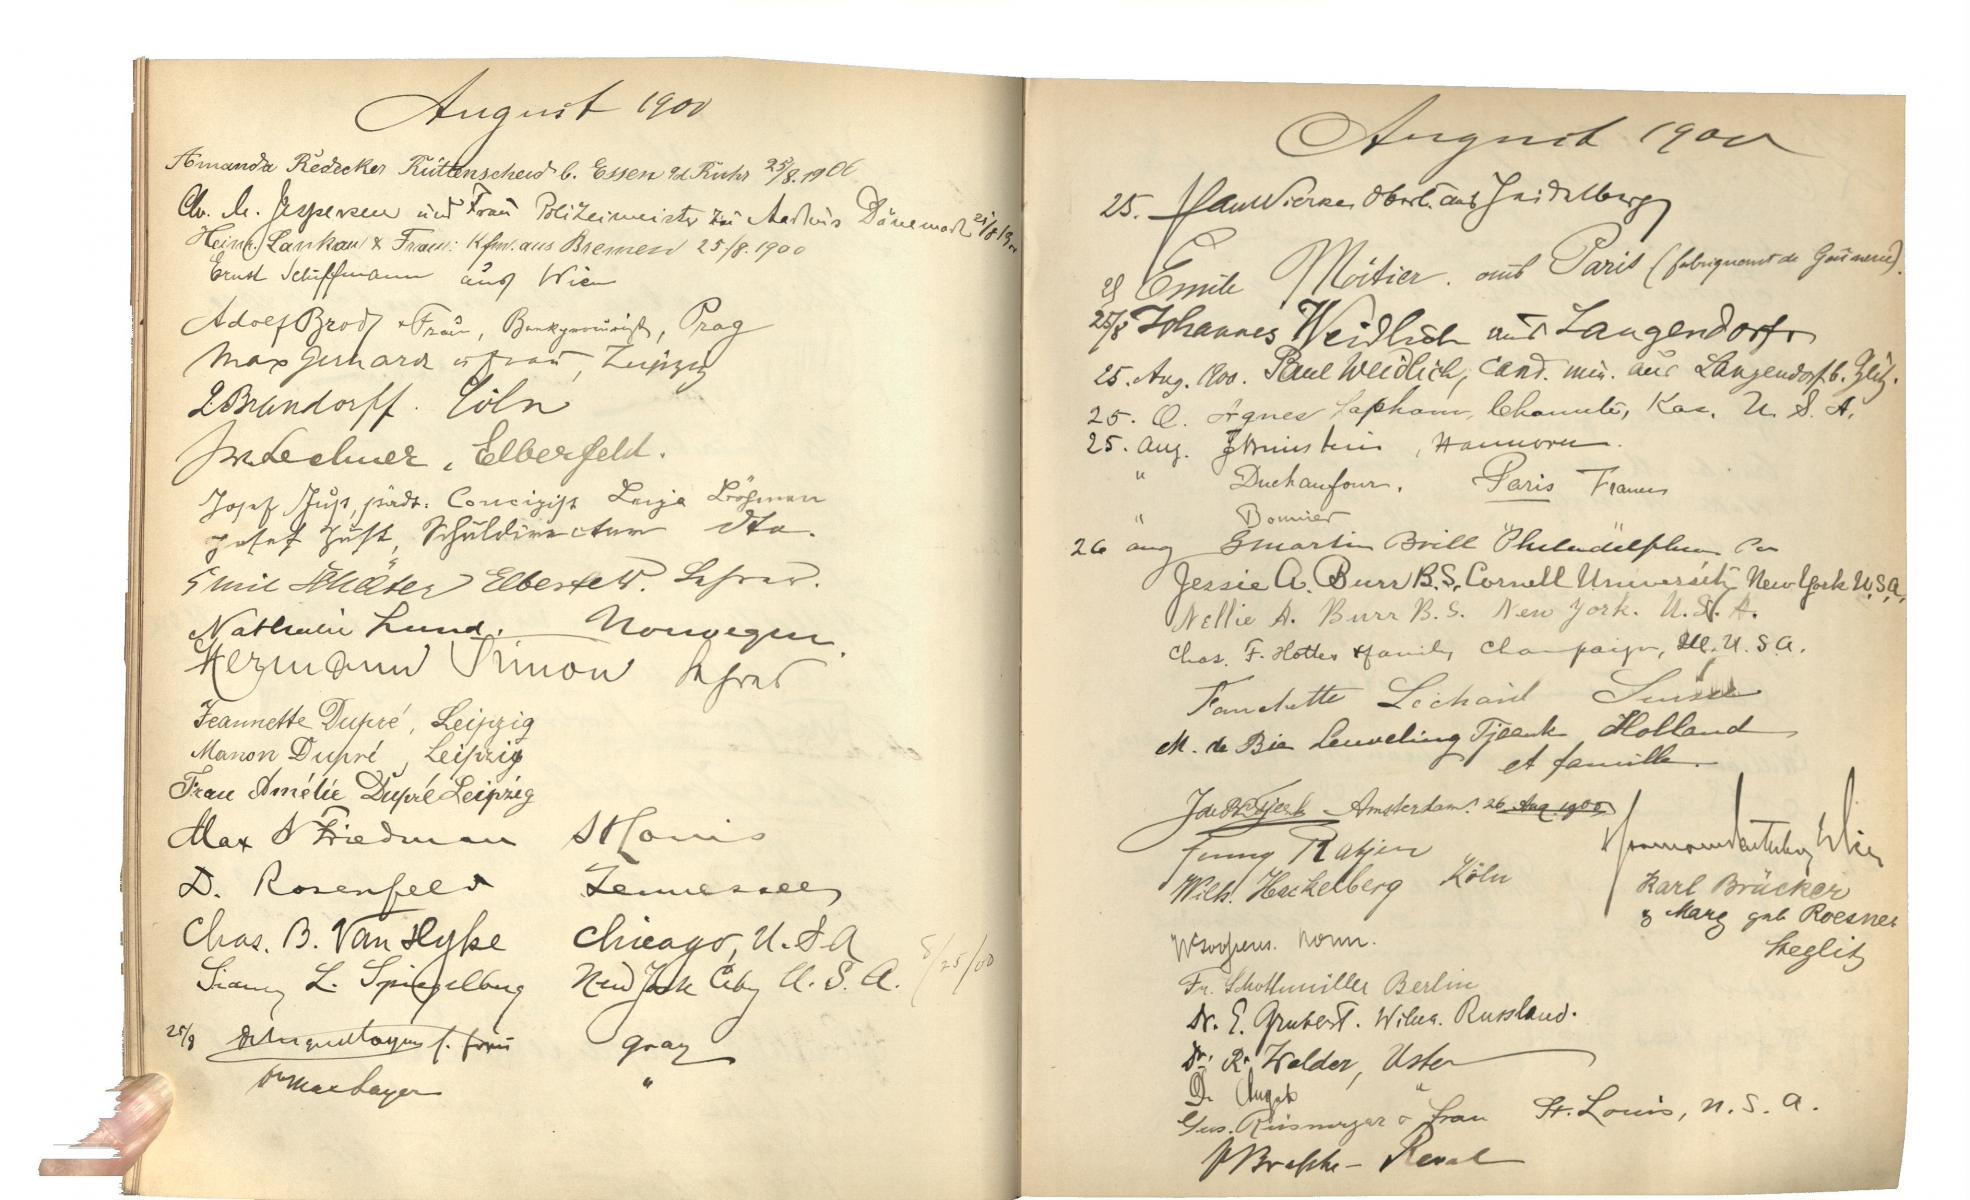 August 1900
Amanda Redecker Rüttenscheid b. Essen a/d Ruhr 25/8. 1900
Chr. M. Jespersen und Frau Polizeimeister zu Aarhus Dänemark
Heinr. Lankau & Frau: Kfm. aus Bremen 25/8. 1900
Ernst Schiffmann aus Wien
Adolf Brod & Frau, Prag
Max Gerhard u Frau, Leipzig
Brandorff. Cöln
Lechner, Elberfeld.
Josef Just,
Josef Just, Schuldirector dto.
Emil Schäfer Elberfeld. Lehrer.
Nathalie Lund. Norwegen.
Hermann Simon Lehrer
Jeannette Dupré, Leipzig
Manon Dupré, Leipzig
Frau Amélie Dupré Leipzig
Max Friedman St Louis
D. Rosenfeld Tennessee
Chas. B. Van Hyke Chicago, U.S.A
L. Spiegelberg New York City U.S.A. 8/25/00
25/8 f. Frau Graz
Dr Max Layer "
August 1900
25. aus Heidelberg
Emile Moitier. aus Paris
25/8 Johannes Weidlich aus Langendorf
25. Aug. 1900. Paul Weidlich, cand. min. aus Langendorf b.
25. O. Agnes Lapham, Chanute, Kas. U.S.A.
25. Aug. Hannover.
" Duchaufour. Paris France
" Bonnier
26 aug Martin Brill Philadelphia Pa
Jessie A. Burr B.S. Cornell University New York U.S.A.
Nellie A. Burr B.S. New York. U.S.A.
Chas. F. Hottes & family Champaign, Ill. U.S.A.
Fanchette Lechaid Suisse
M. de Bie Leuveling Tjeenk Holland
et famille.
Amsterdam. 26 Aug. 1900
Fanny Ratjen
Wilh. Hackelberg Köln
Karl Brücker
u Marg geb Roesner
Steglitz
Bonn.
Fr. Schottmüller Berlin
Dr. E. Grubert. Wilna. Russland.
Dr. R. Walder, Uster
Dr. August "
Gus. & Frau St. Louis, U.S.A.
Reval